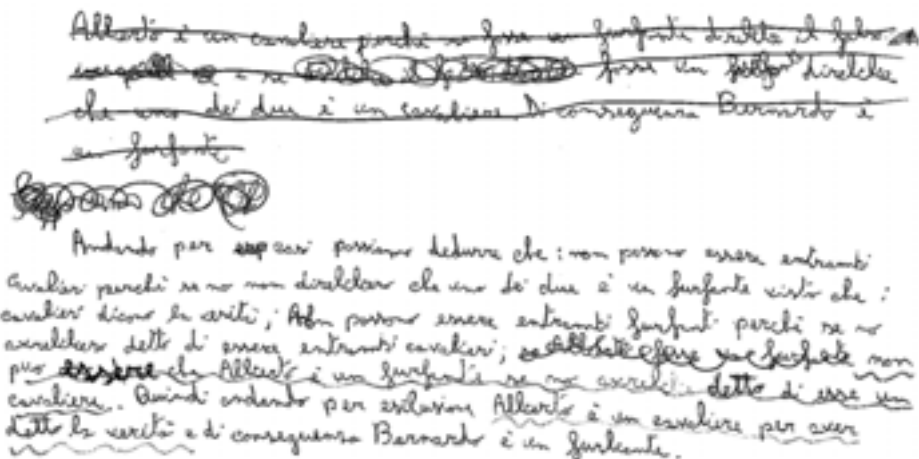 Alberto è un cavaliere perchè se fosse un furfante direbbe il falso
e se fosse un direbbe
che uno dei due è un cavaliere Di conseguenza Bernardo è
un furfante
Andando per casi possiamo dedurre che: non possono essere entrambi
cavalieri perchè se no non direbbero che uno dei due è un furfante visto che i
cavalieri dicono la verità; Non possono essere entrambi furfanti perchè se no
avrebbero detto di essere entrambi cavalieri; se Alberto fosse un furfante non
può essere che Alberto è un furfante se no avrebbe detto di esse un
cavaliere. Quindi andando per esclusione Alberto è un cavaliere per aver
detto la verità e di conseguenza Bernardo è un furfante.